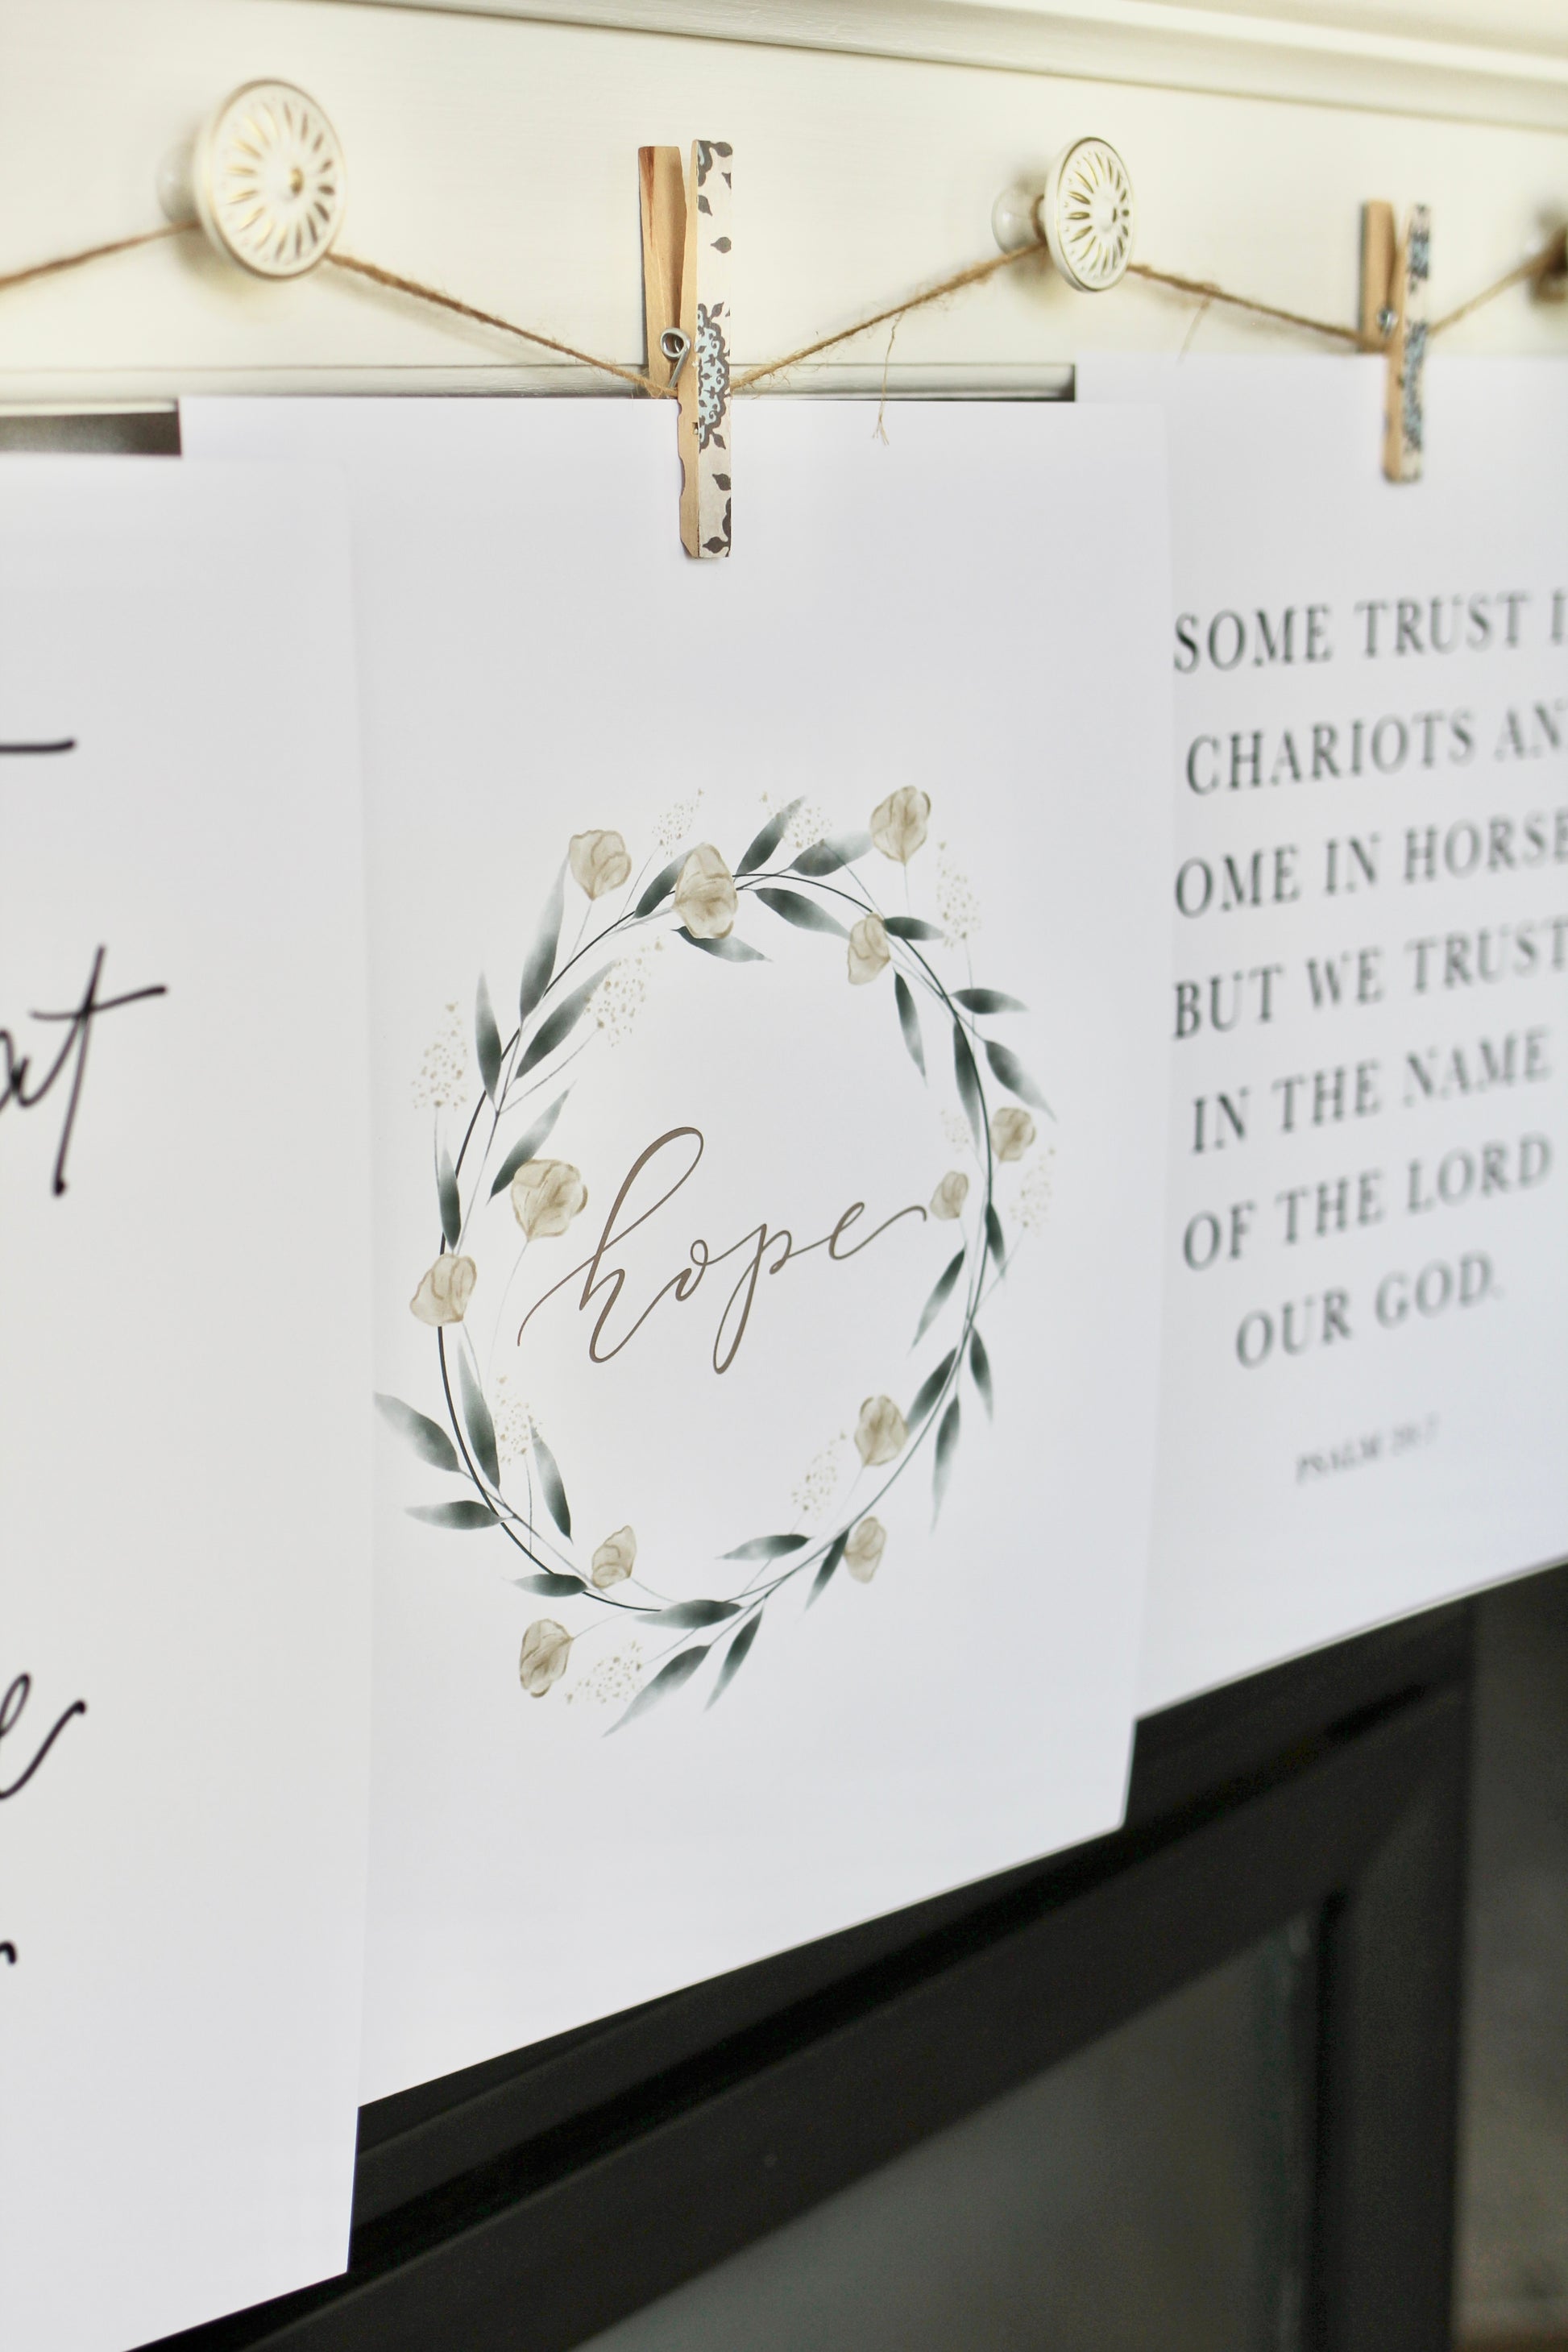 at
hope
SOME TRUST I
CHARIOTS AN
OME IN HORSE
BUT WE TRUST
IN THE NAME
OF THE LORD
OUR GOD.
PSALM 20:7